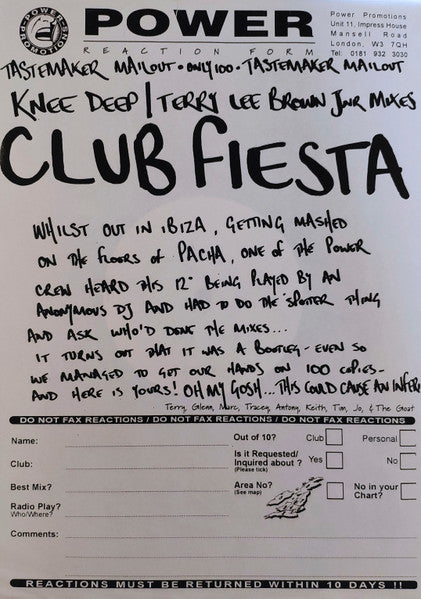 POWER
REACTION FORM
Power Promotions
Unit 11, Impress House
Mansell Road
London, W3 7QH
Tel: 0181 932 3030
TASTEMAKER MAILOUT · ONLY 100 · TASTEMAKER MAILOUT
KNEE DEEP / TERRY LEE BROWN JNR MIXES
CLUB FIESTA
WHILST OUT IN IBIZA, GETTING MASHED
ON THE FLOORS OF PACHA, ONE OF THE POWER
CREW HEARD THIS 12" BEING PLAYED BY AN
ANONYMOUS DJ AND HAD TO DO THE SPOTTER THING
AND ASK WHO'D DONE THE MIXES...
IT TURNS OUT THAT IT WAS A BOOTLEG - EVEN SO
WE MANAGED TO GET OUR HANDS ON 100 COPIES-
AND HERE IS YOURS! OH MY GOSH...THIS COULD CAUSE AN INFER
Terry, Glenn, Marc, Tracey, Antony, Keith, Tim, Jo, & The Goat
DO NOT FAX REACTIONS / DO NOT FAX REACTIONS / DO NOT FAX REACTIONS
Name:
Out of 10? Club Personal
Club:
Is it Requested/
Inquired about ? Yes No
(Please tick)
Best Mix?
Area No?
(See map)
No in your
Chart?
Radio Play?
Who/Where?
Comments:
REACTIONS MUST BE RETURNED WITHIN 10 DAYS !!